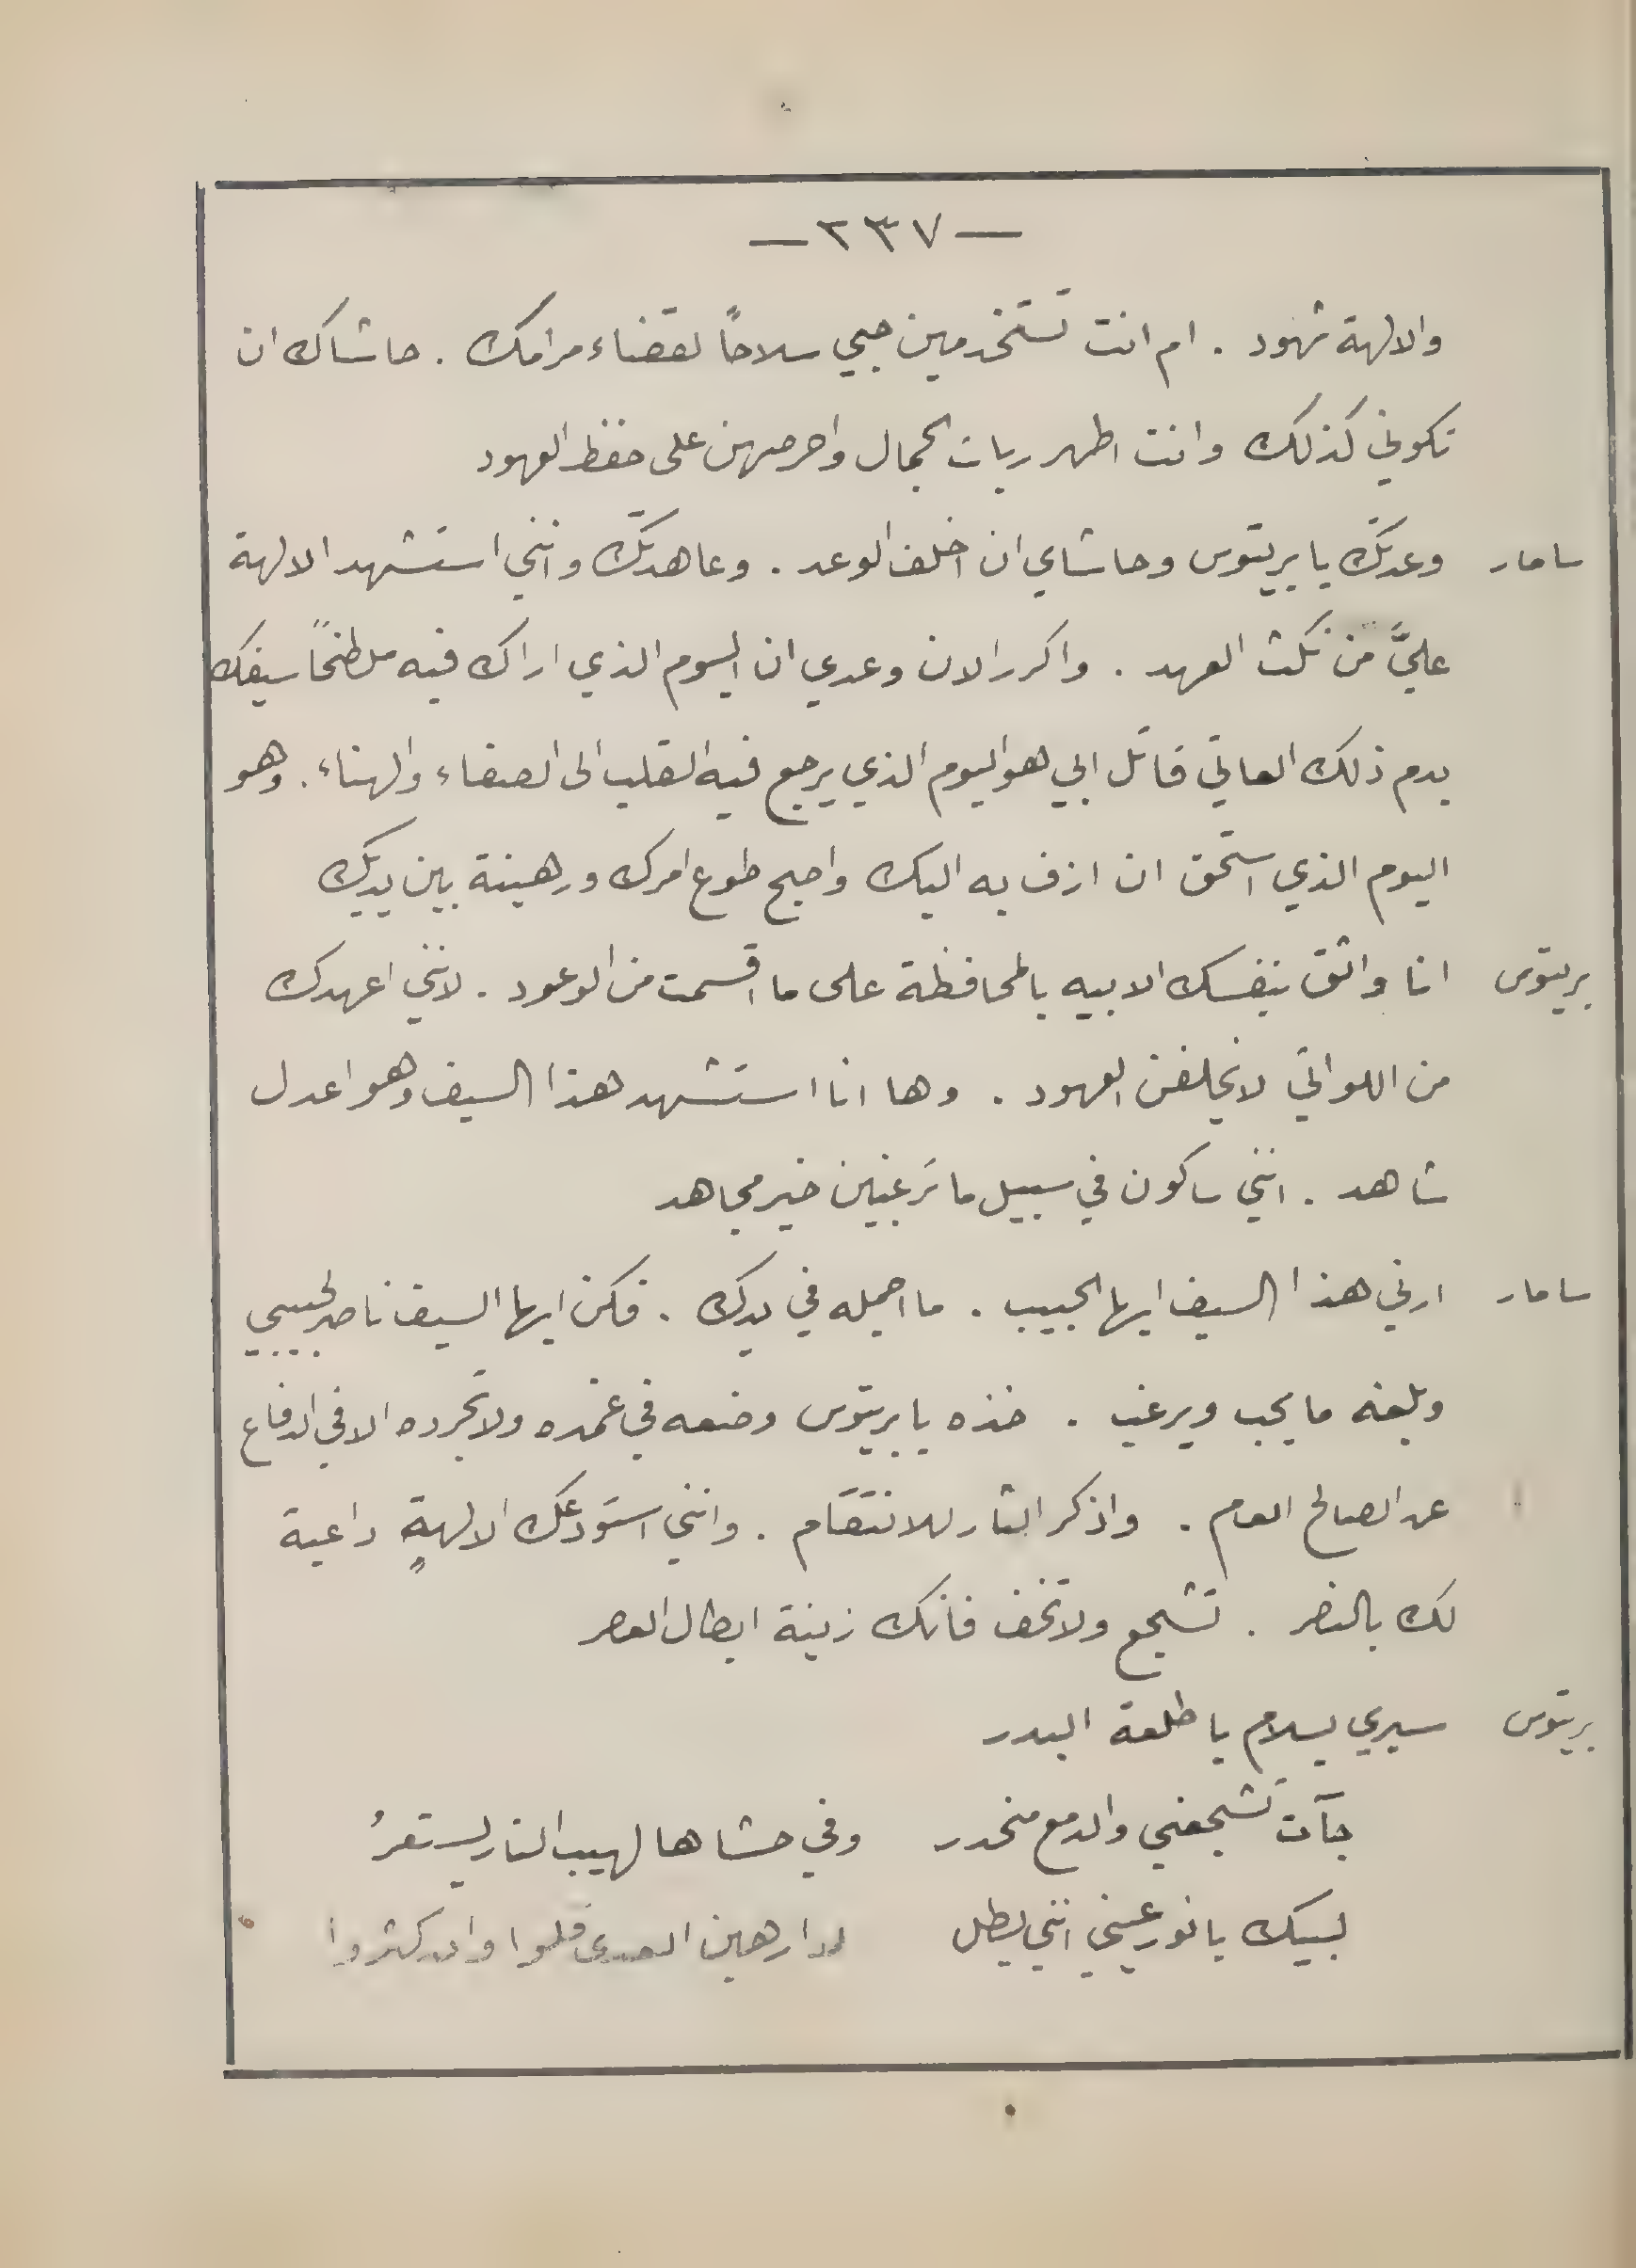 — ٢٣٧ —
والالهة شهود . ام انت تستخدمين حبي سلاحاً لقضاء مرامك . حاشاك ان
تكوني كذلك وانت اطهر ربات الجمال واحرصهن على حفظ العهود
سامار وعدتك يا بريتوس وحاشاي ان اخلف الوعد . وعاهدتك وانني استشهد الالهة
عليَّ من نكث العهد . واكرر الان وعدي ان اليوم الذي اراك فيه ملطخاً سيفك
بدم ذلك العاتي قاتل ابي هو اليوم الذي يرجع فيه القلب الى الصفاء والهناء . وهو
اليوم الذي استحق ان ازف به اليك واصبح طوع امرك ورهينة بين يديك
بريتوس انا واثق بنفسك الابيه بالمحافظة على ما اقسمت من الوعود . لانني اعهدك
من اللواتي لا يخلفن العهود . وها انا استشهد هذا السيف وهو اعدل
شاهد . انني ساكون في سبيل ما ترغبين خير مجاهد
سامار ارني هذا السيف ايها الحبيب . ما اجمله في يدك . فكن ايها السيف ناصر لحبيبي
وبلغه ما يحب ويرغب . خذه يا بريتوس وضعه في غمده ولا تجرده الا في الدفاع
عن الصالح العام . واذكر الثار للانتقام . وانني استودعك الالهةٍ داعية
لك بالنصر . تشجع ولا تخف فانك زينة ابطال العصر
بريتوس سيري بسلام يا طلعة البدر
جآت تشجعني والدمع منحدر وفي حشاها لهيب النار يستعرُ
لبيك يا نور عيني انني بطل لا ارهبن العدى قلوا وان كثروا